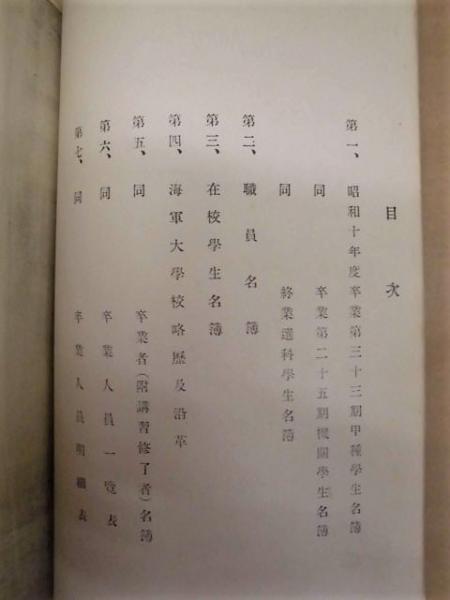 目次
第一、昭和十年度卒業第三十三期甲種學生名簿
同 卒業第二十五期機關學生名簿
同 終業選科學生名簿
第二、職員名簿
第三、在校學生名簿
第四、海軍大學校略歷及沿革
第五、同 卒業者(附講習修了者)名簿
第六、同 卒業人員一覽表
第七、同 卒業人員明細表